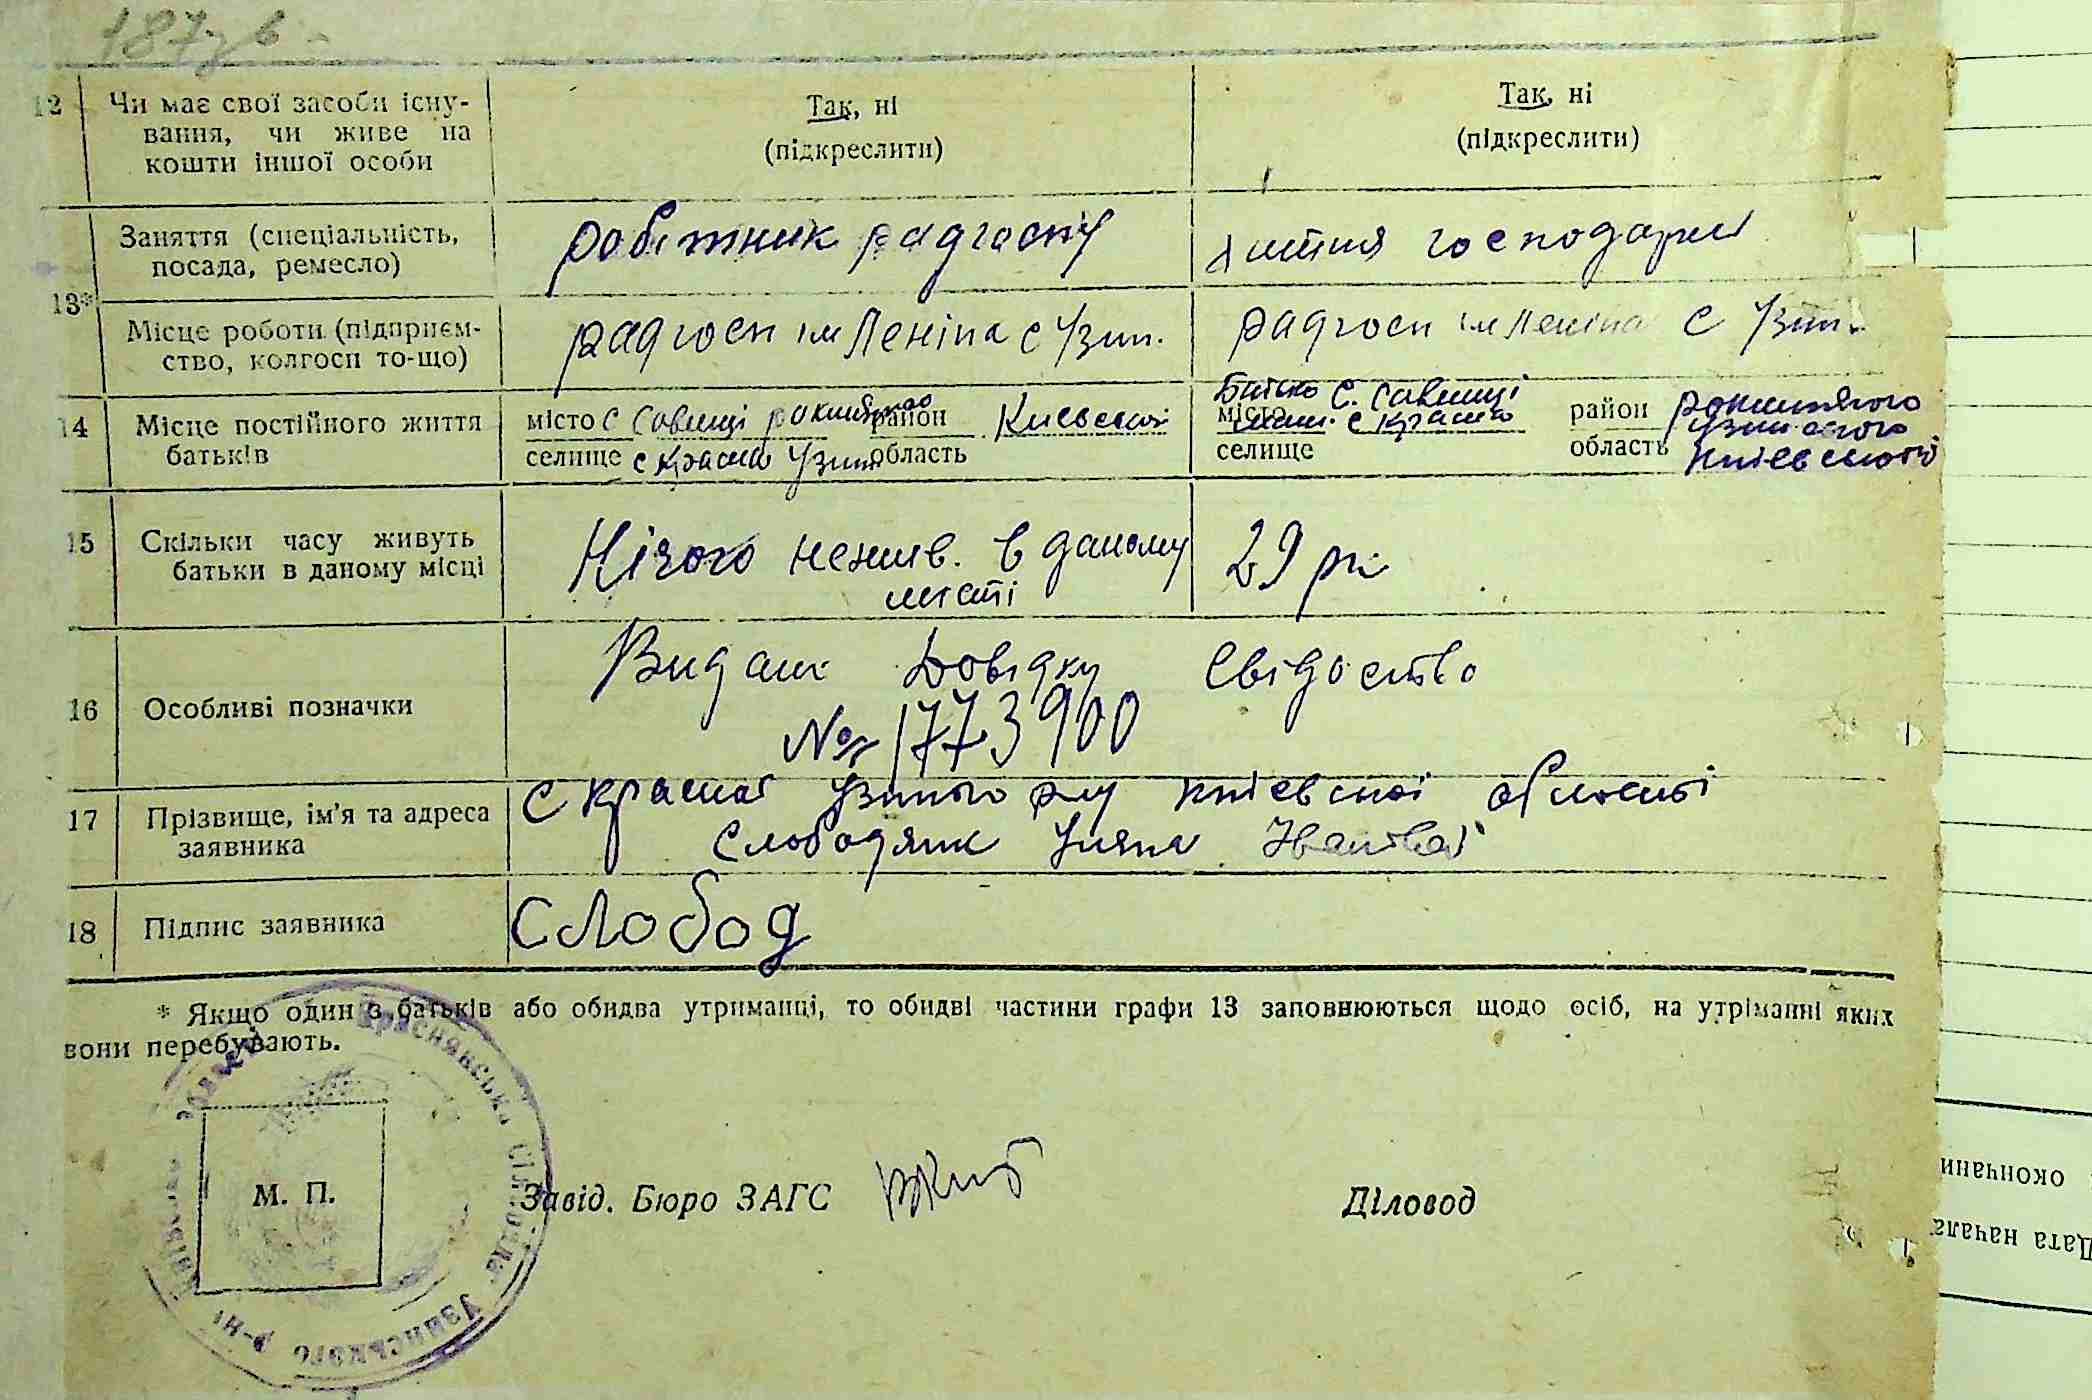 187зв
12 Чи має свої засоби існу-
вання, чи живе на
кошти іншої особи
Так, ні
(підкреслити)
Так, ні
(підкреслити)
13*
Заняття (спеціальність,
посада, ремесло)
робітник радгоспу
господарки
Місце роботи (підприєм-
ство, колгосп то-що)
радгосп ім Леніна с Узин.
радгосп ім Леніна с Узин.
14 Місце постійного життя
батьків
місто с Савинці район Київської
селище с Красне Узин область
Батько с. Савинці
місто с Красно район
селище область
Узинского
Київської
15 Скільки часу живуть
батьки в даному місці
Нічого нежив. в даному
місті
29 рк
16 Особливі позначки
Видано Довідку Свідоство
№ 1773900
17 Прізвище, ім'я та адреса
заявника
с Красної Узиного р-ну Київської області
Слободяник Уляна Іванівна
18 Підпис заявника
Слобод
* Якщо один з батьків або обидва утриманці, то обидві частини графи 13 заповнюються щодо осіб, на утріманні яких
вони перебувають.
Краснянська Сільрада Узинського р-ну
М. П.
Завід. Бюро ЗАГС
Діловод
окончани
Дата начала